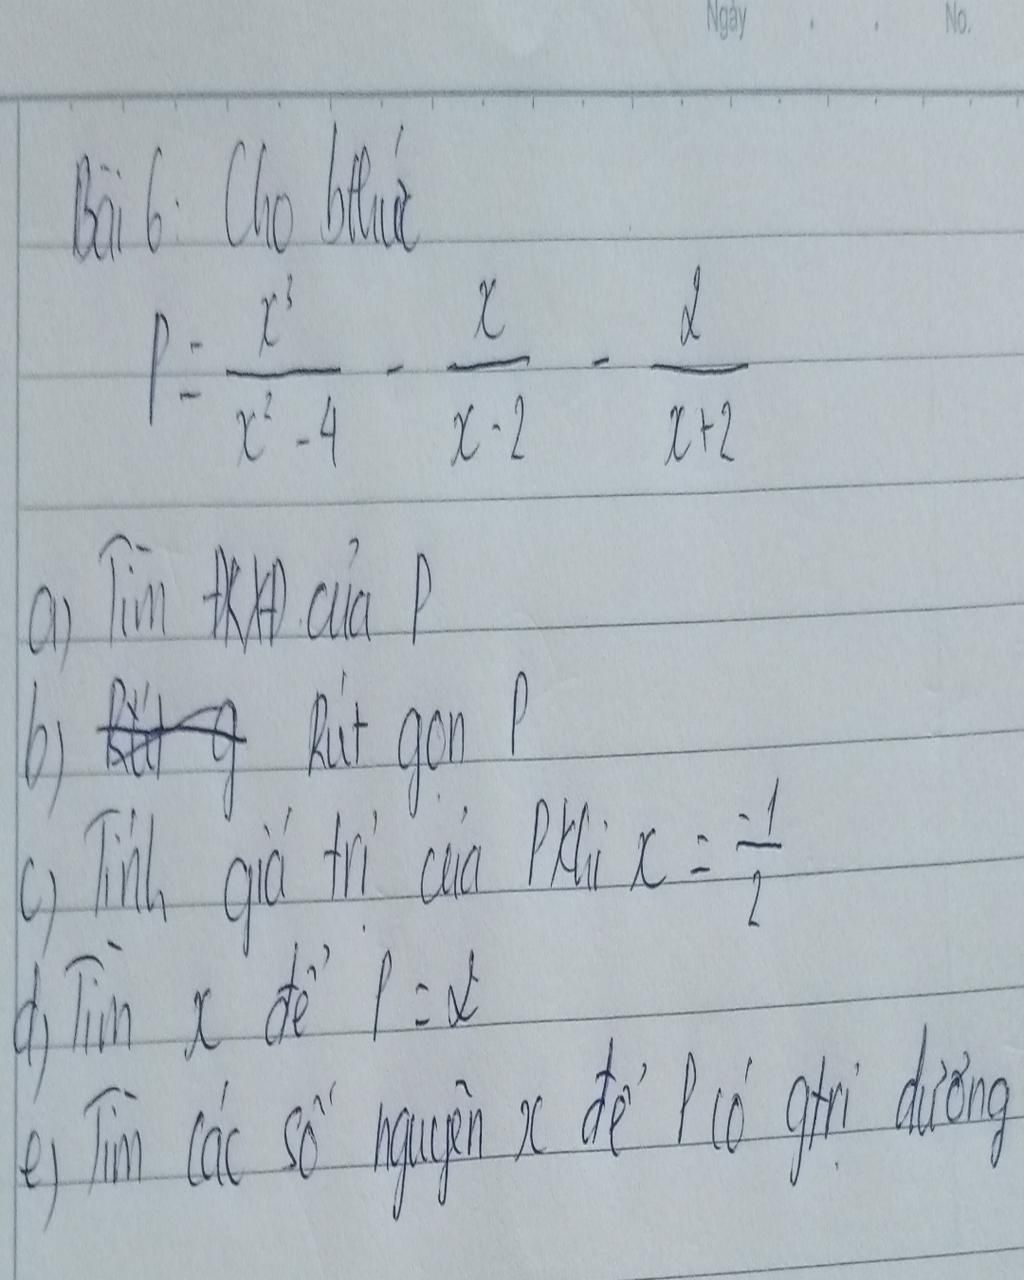 Ngày . . No.
Bài 6: Cho bthức
P = x³/(x² - 4) - x/(x - 2) - 2/(x + 2)
a) Tìm ĐKXĐ của P
b) Rút gọn P
c) Tính giá trị của P khi x = -1/2
d) Tìm x để P = 2
e) Tìm các số nguyên x để P có gtrị dương